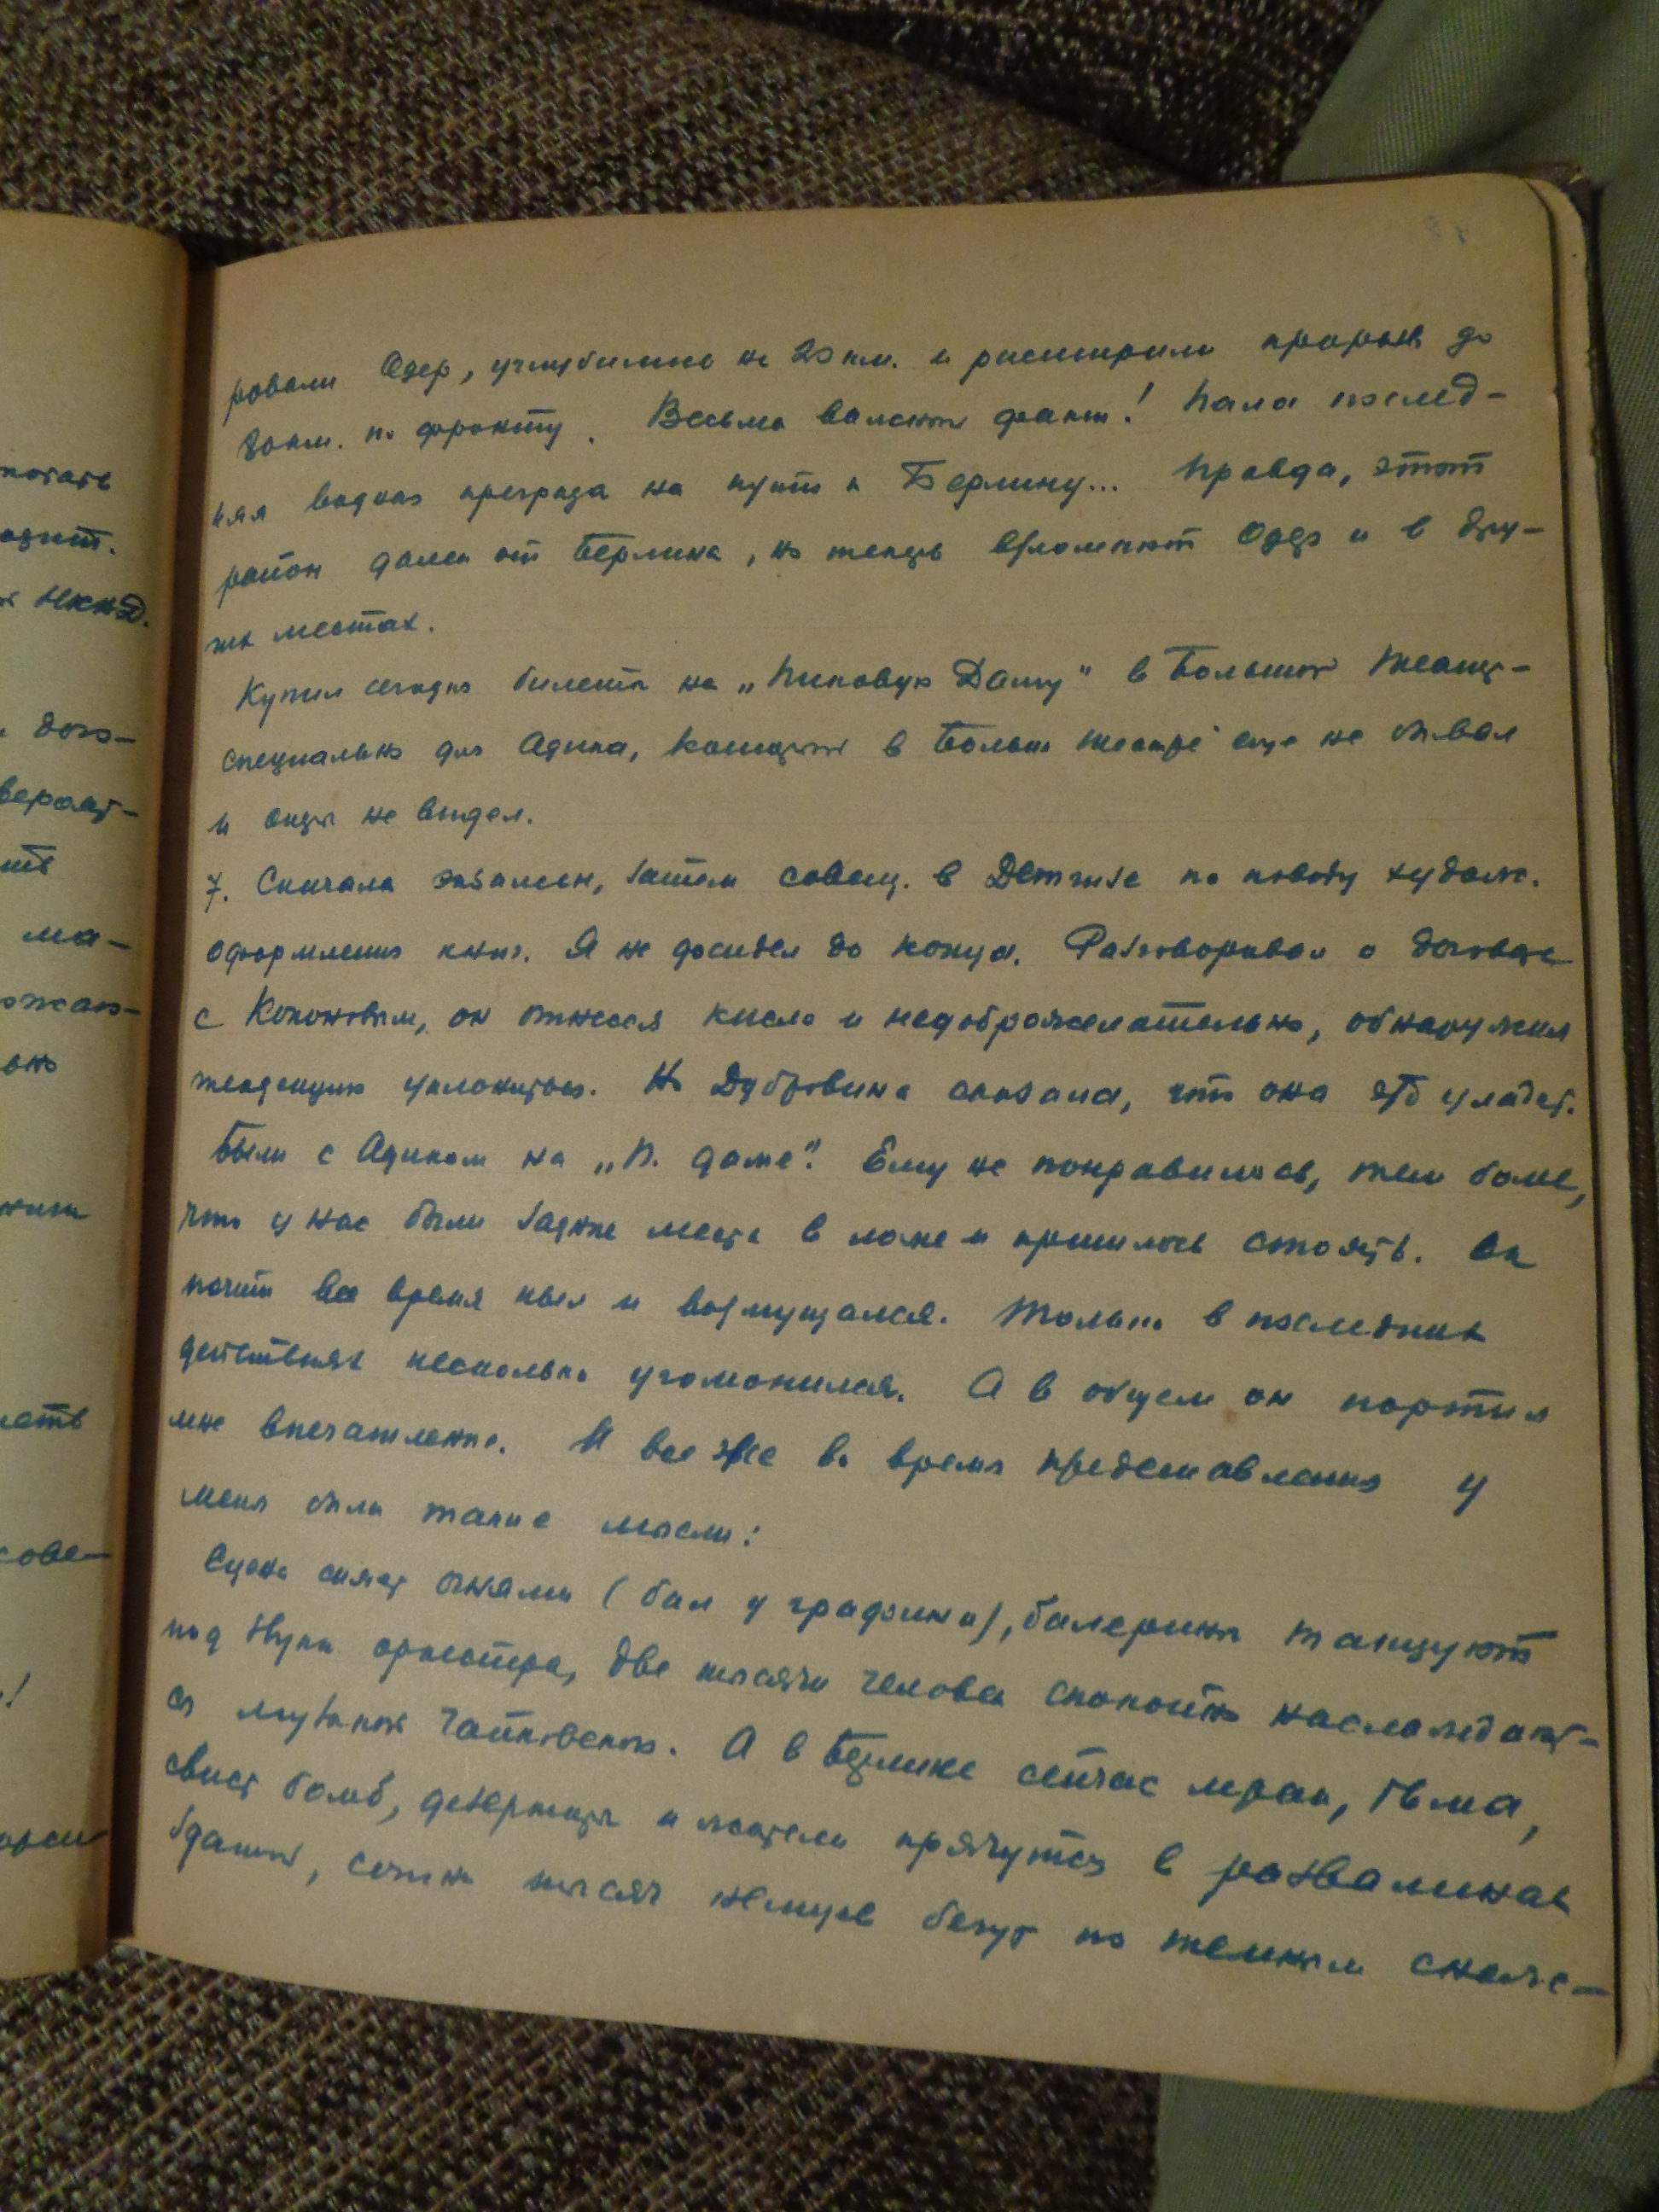 ровали Одер, углубились на 20 км. и расширили прорыв до
80 км. по фронту. Весьма важный факт! Пала послед-
няя водная преграда на пути к Берлину... Правда, этот
район далек от Берлина, но теперь взломают Одер и в дру-
гих местах.
Купил сегодня билеты на „Пиковую Даму" в Большой Театр -
специально для Адика, который в Больш. театре еще не бывал
и оперы не видел.
7. Сначала экзамен, затем совещ. в Детгизе по поводу худож.
оформления книг. Я не досидел до конца. Разговаривал о договоре
с Кононовым, он отнесся кисло и недоброжелательно, обнаружил
тенденцию уклониться. Но Дубровина сказала, что она это уладит.
Были с Адиком на „П. даме". Ему не понравилось, тем более,
что у нас были задние места в ложе и пришлось стоять. Он
почти все время ныл и возмущался. Только в последних
действиях несколько угомонился. А в общем он портил
мне впечатление. И все же во время представления у
меня были такие мысли:
Сцена сияет огнями (бал у графини), балерины танцуют
под звуки оркестра, две тысячи человек спокойно наслаждают-
ся музыкой Чайковского. А в Берлине сейчас мрак, тьма,
свист бомб, дезертиры и жители прячутся в развалинах
зданий, сотни тысяч немцев бегут по темным